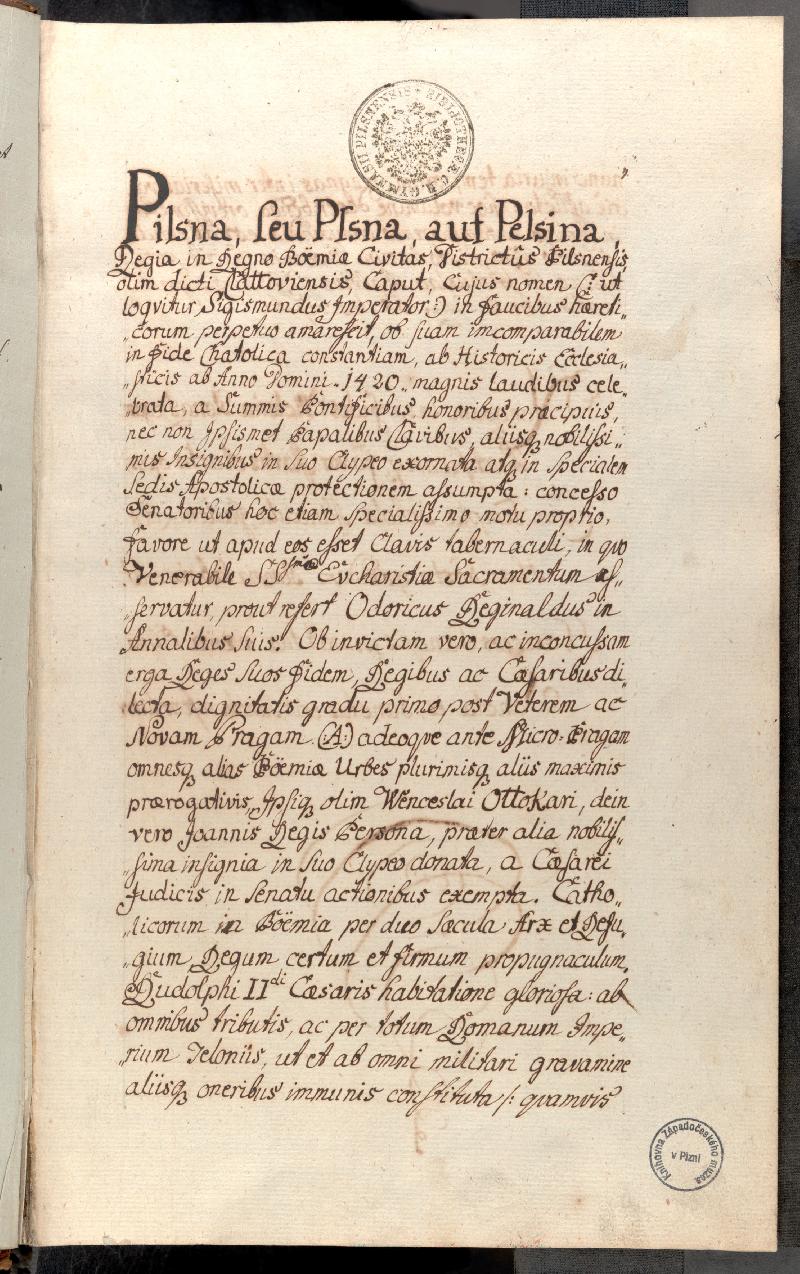 BIBLIOTHECÆ C. R. GYMNASII PILSNENSIS
Pilsna, seu Plsna, aut Pelsina,
Regia in Regno Boëmiæ Civitas, Districtûs Pilsnensis
olim dicti Clattoviensis, Caput, Cujus nomen (: ut
loqvitur Sigismundus Imperator :) in faucibus hæreti„
„corum perpetuo amarescit, ob suam imcomparabilem
in Fide Chatolica constantiam, ab Historicis Ecclesia„
„sticis ab Anno Domini 1420. magnis laudibus cele„
„brata, a Summis Pontificibus honoribus præcipuis,
nec non Ipsismet Papalibus Clavibus, aliisq nobilissi„
mis Insignibus in suo Clypeo exornata atq in specialem
Sedis Apostolicæ protectionem assumpta: concesso
Senatoribus hoc etiam specialissimo motu proprio,
favore ut apud eos esset Clavis tabernaculi, in quo
Venerabile SSmæ Evcharistiæ Sacramentum as„
„servatur, prout refert Odoricus Reginaldus in
Annalibus suis. Ob invictam vero, ac inconcussam
erga Reges suos fidem, Regibus ac Cæsaribus di„
lecta, dignitatis gradu primo post Veterem ac
Novam Pragam (:A:) adeoqve ante Micro-Pragam
omnesq alias Boëmiæ Urbes plurimisq aliis maximis
prærogativis, Ipsiq olim Wenceslai Ottokari, dein
vero Joannis Regis Persona, præter alia nobilis„
„sima insignia in suo Clypeo donata, a Cæsarei
Judicis in Senatu actionibus exempta. Catho„
„licorum in Boëmia per duo sæcula Arx et Refu„
„gium Regum certum et firmum propugnaculum,
Rudolphi IIdi Cæsaris habitatione gloriosa: ab
omnibus tributis, ac per totum Romanum Impe„
„rium Teloniis, ut et ab omni militari gravamine
aliisq oneribus immunis constituta /: qvamvis
Knihovna Západočeského muzea
v Plzni